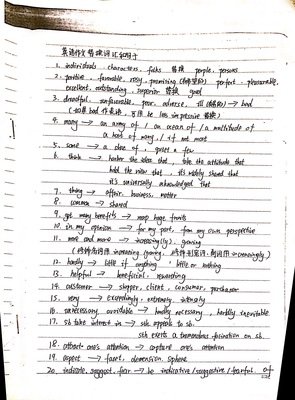 英语作文替换词汇和句子
1. individuals, characters, folks 替换 people, persons
2. positive, favorable, rosy, promising (有希望的) perfect, pleasurable,
excellent, outstanding, superior 替换 good
3. dreadful, unfavorable, poor, adverse, ill (有害的) → bad
(如果 bad 作表语, 可用 be less impressive 替换)
4. many → an army of / an ocean of / a multitude of
a host of many, / if not most
5. some → a slice of, quite a few
6. think → harbor the idea that, take the attitude that
hold the view that, it's widely shared that
it's universally acknowledged that
7. thing → affair, business, matter
8. common → shared
9. get many benefits → reap huge fruits
10. in my opinion → for my part, from my own perspective
11. more and more → increasing(ly), growing
increasing growing, increasingly)
12. hardly → little if anything, little or nothing
13. helpful → beneficial, rewarding
14. customer → shopper, client, consumer, purchaser
15. very → exceedingly, extremely, intensely
16. unnecessary, avoidable → hardly necessary, hardly inevitable
17. sb take interest in → sth appeals to sb.
sth exerts a tremendous fascination on sb.
18. attract one's attention → capture one's attention
19. aspect → facet, dimension, sphere
20. indicate, suggest, fear → be indicative/suggestive/fearful of